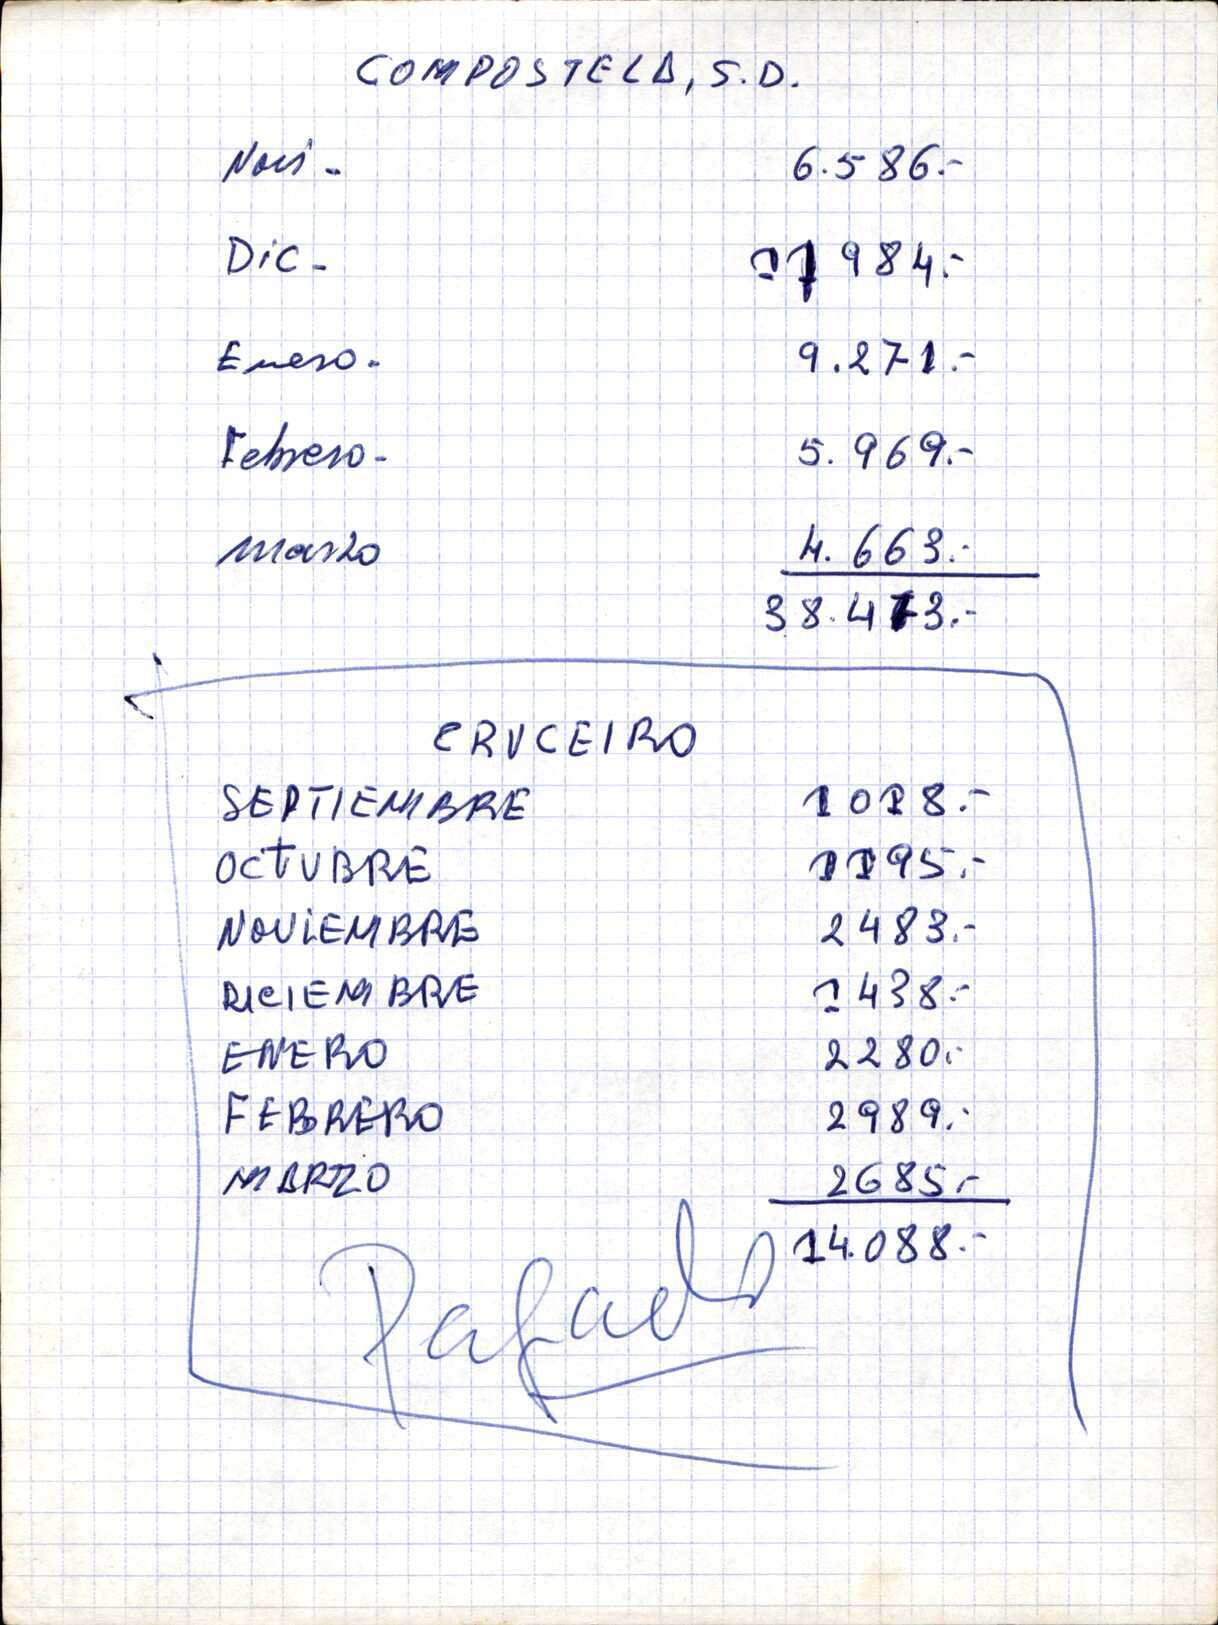 COMPOSTELA, S.D.
Novi - 6.586.-
Dic - 11984.-
Enero - 9.271.-
Febrero - 5.969.-
Marzo 4.663.-
38.473.-
CRUCEIRO
SEPTIEMBRE 1018.-
OCTUBRE 1195.-
NOVIEMBRE 2483.-
DICIEMBRE 1438.-
ENERO 2280.-
FEBRERO 2989.-
MARZO 2685.-
14.088.-
Pagado